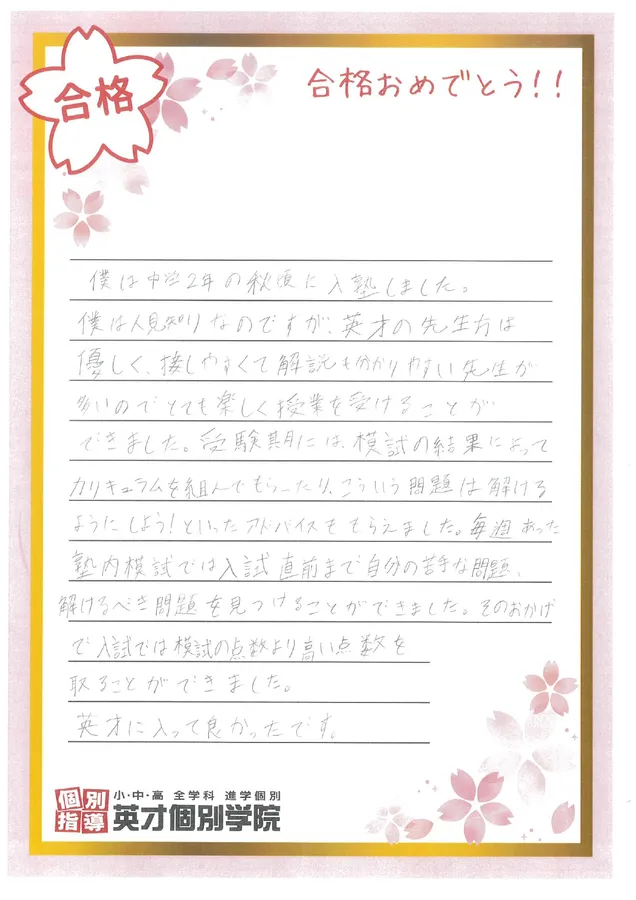 合格
合格おめでとう!!
僕は中学2年の秋頃に入塾しました。
僕は人見知りなのですが、英才の先生方は
優しく、接しやすくて解説も分かりやすい先生が
多いのでとても楽しく授業を受けることが
できました。受験期には、模試の結果によって
カリキュラムを組んでもらったり、こういう問題は解ける
ようにしよう!といったアドバイスをもらえました。毎週あった
塾内模試では入試直前まで自分の苦手な問題、
解けるべき問題を見つけることができました。そのおかげ
で入試では模試の点数より高い点数を
取ることができました。
英才に入って良かったです。
個別指導
小・中・高 全学科 進学個別
英才個別学院